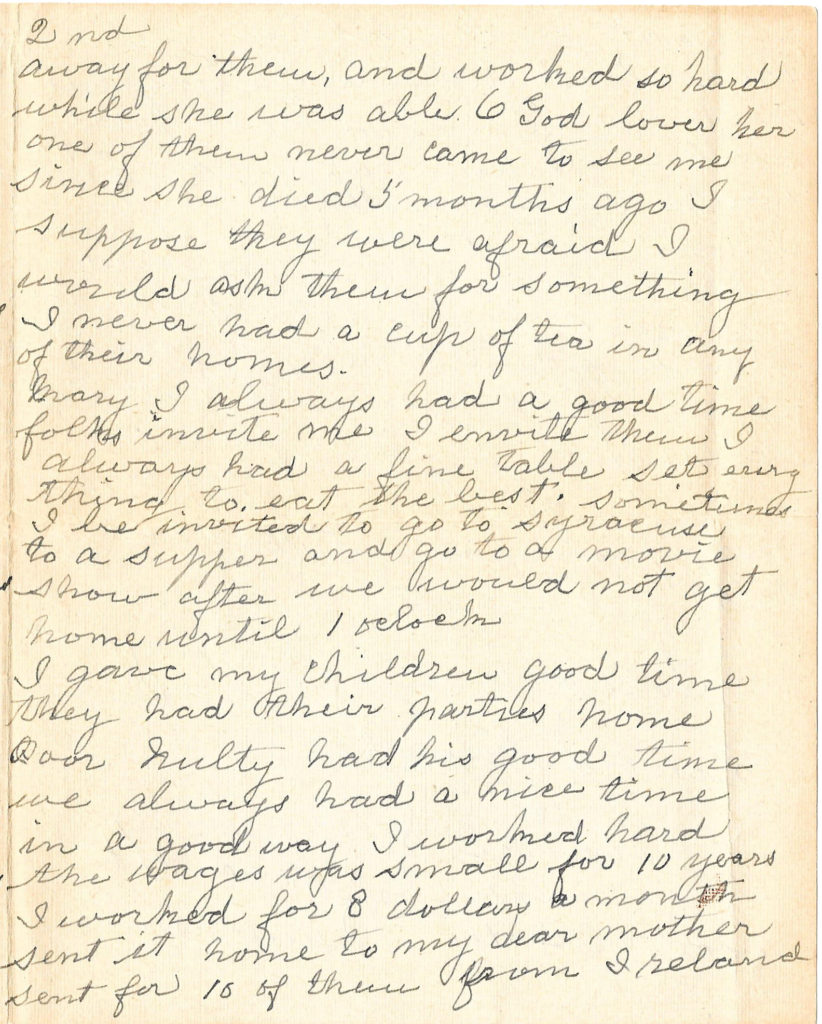 2nd
away for them, and worked so hard
while she was able. O God lover her
one of them never came to see me
since she died 5 months ago I
suppose they were afraid I
would ask them for something
I never had a cup of tea in any
of their homes.
Mary I always had a good time
folks invite me I envite them I
always had a fine table set evrg
thing to eat the best. sometimes
I be invited to go to Syracuse
to a supper and go to a movie
show after we would not get
home until 1 oclock
I gave my children good time
they had their parties home
Poor Nulty had his good time
we always had a nice time
in a good way I worked hard
the wages was small for 10 years
I worked for 8 dollars a month
sent it home to my dear mother
sent for 10 of them from Ireland